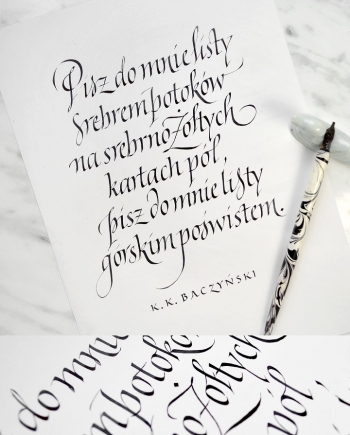 Pisz do mnie listy
srebrem potoków
na srebrnożołtych
kartach pól,
pisz do mnie listy
górskim poświstem.
K. K. BACZYŃSKI
do mnie
em potoko
ożołtych
pól